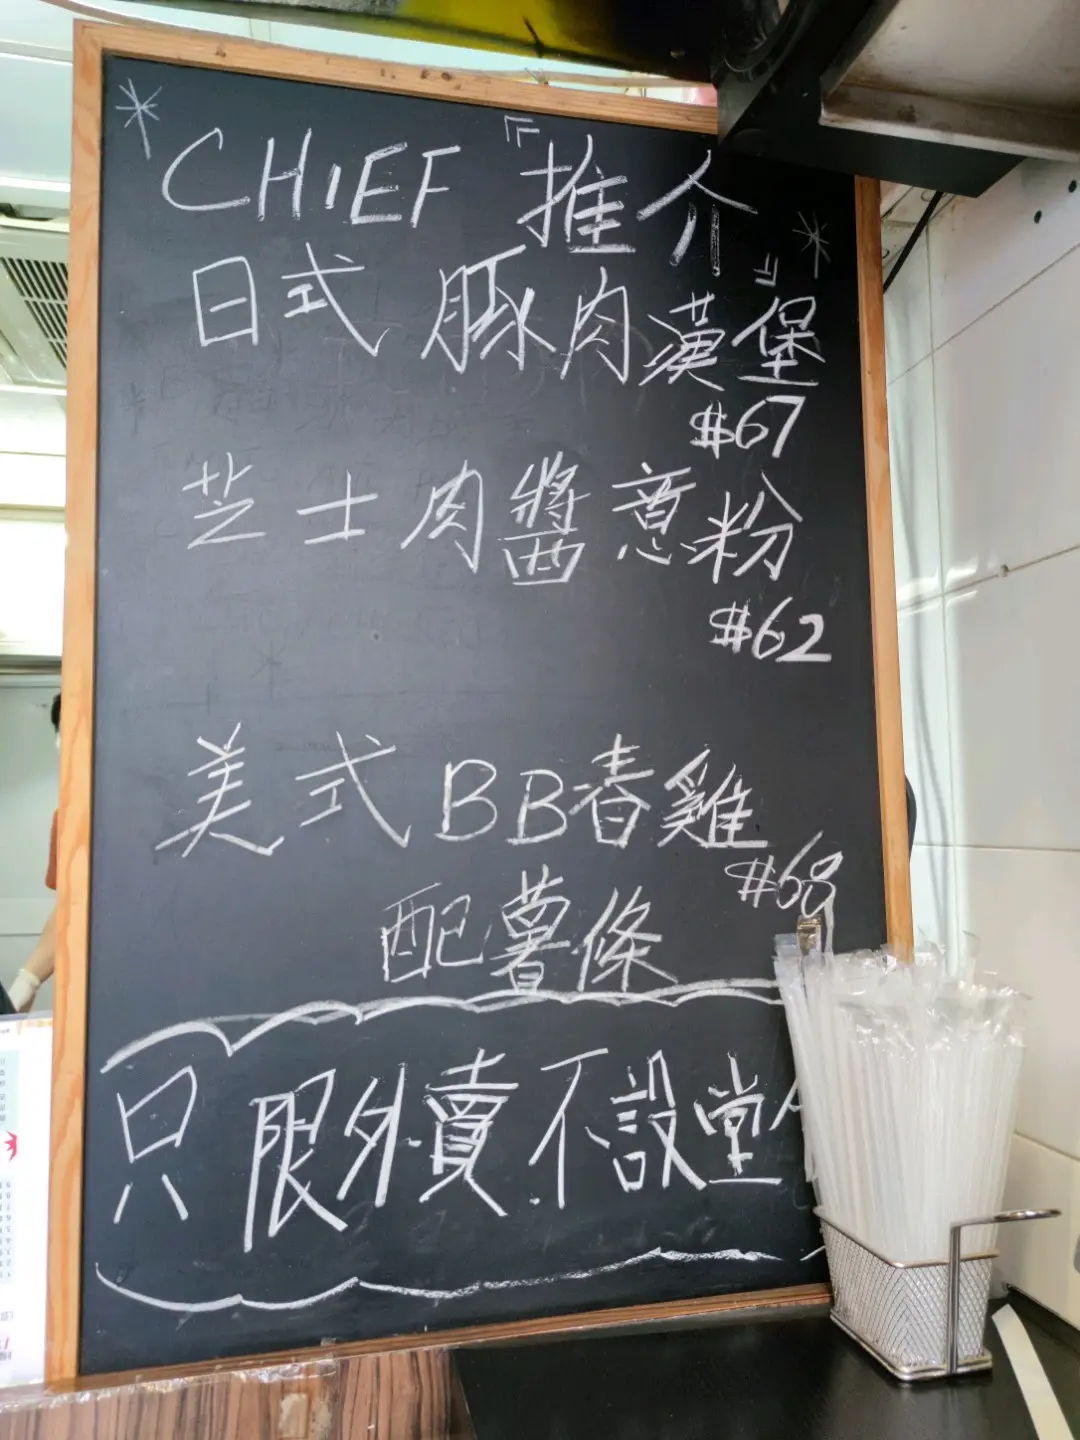 CHIEF『推介』
日式豚肉漢堡
$67
芝士肉醬意粉
$62
美式BB春雞
$68
配薯條
只限外賣不設堂